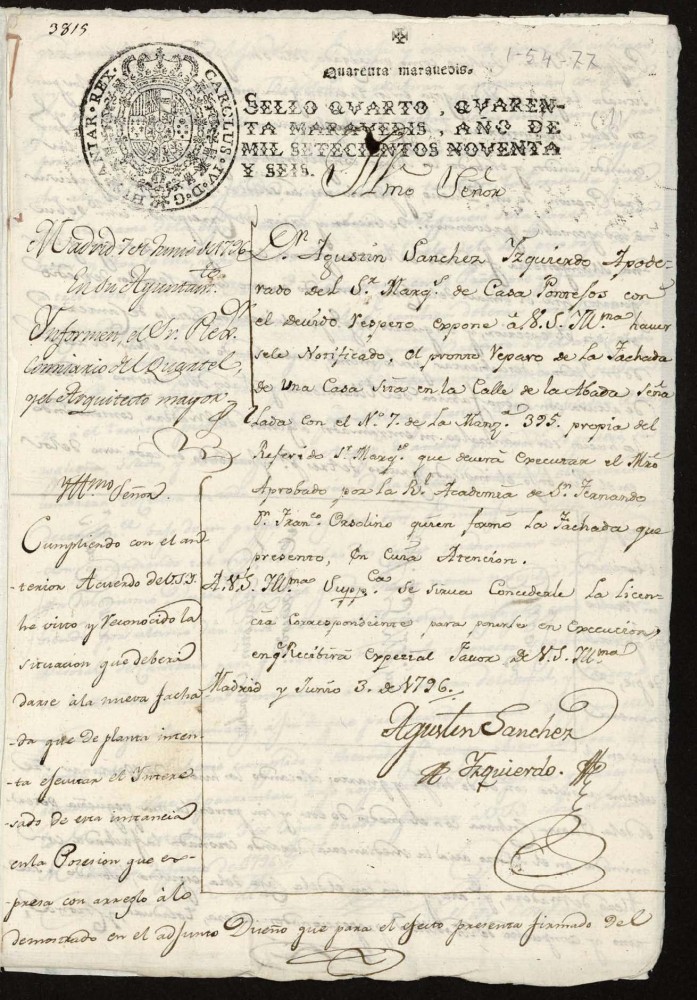 3815
1-54-77
Quarenta marauedis.
CAROLUS·IV·D·G·HISPANIAR·REX·
SELLO QVARTO, QVAREN-
TA MARAVEDIS, AÑO DE
MIL SETECIENTOS NOVENTA
Y SEIS.
Yllmo Señor
Madrid 7 de Junio de 1796
En su Ayuntamto
Informen, el Sr. Rexor
Comisario del Quartel,
y el Arquitecto mayor.
Dn. Agustin Sanchez Yzquierdo Apode-
rado del Sr. Marqs. de Casa Pontejos con
el devido respeto expone á V. S. Yllma haver
sele Notificado, el pronto reparo de la Fachada
de una Casa sita en la Calle de la Abada seña
lada con el No. 7. de la Manza 395. propia del
Referido Sr. Marqs. que deverá executar el Mro
Aprobado por la Rl. Academia de Sn. Fernando
Dn. Franco Orsolino quien formó la Fachada que
presento, En cuia Atencion.
A.V.S. Yllma Suppca. se sirva Concederle la Licen-
cia Correspondiente para ponerse en Execucion,
en qe. Recibirá Especial Favor de V. S. Yllma
Madrid y Junio 3. de 1796.
Agustin Sanchez
Yzquierdo.
Yllmo Señor.
Cumpliendo con el an-
-terior Acuerdo de V.S.Y.
he visto y reconocido la
situacion que deberá
darse á la nueva facha
-da que de planta inten-
-ta ejecutar el Intere
sado de esta instancia
en la Posesion que ex-
-presa con arreglo á lo
demostrado en el adjunto Diseño que para el efecto presenta firmado del